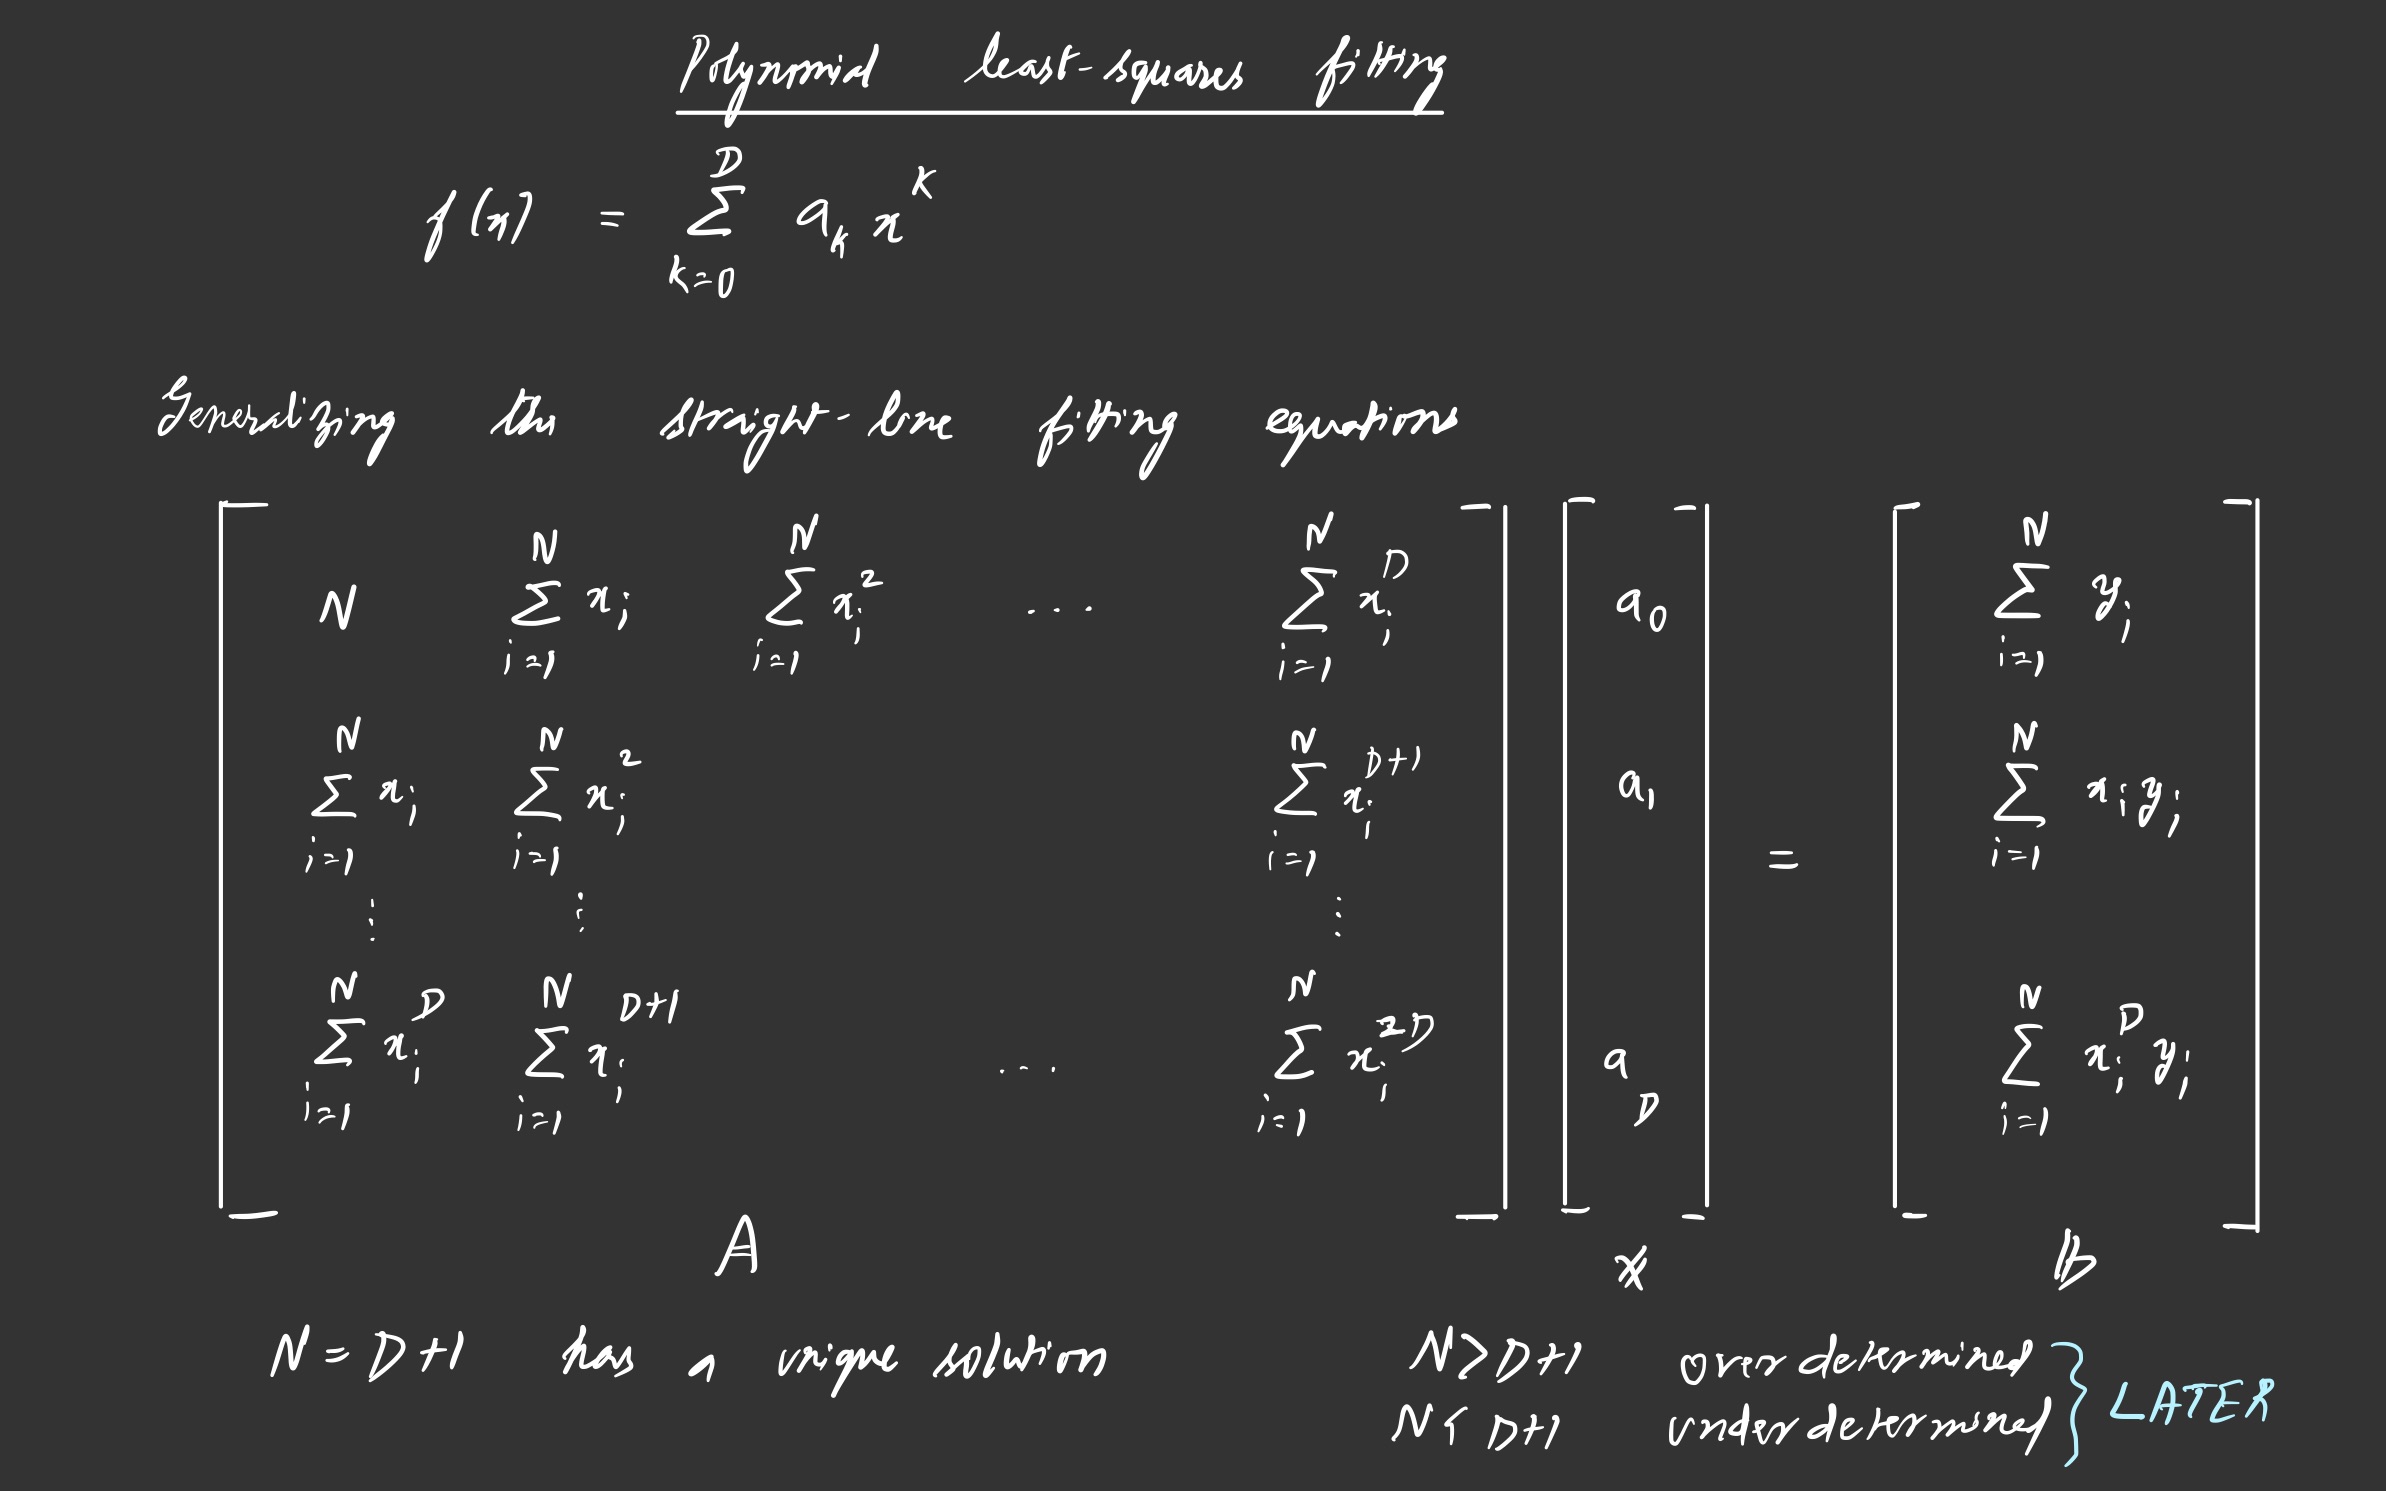 Polynomial least-squares fitting
f(x) = ∑_{k=0}^{D} a_k x^k
Generalizing the straight-line fitting equations
[ N   ∑_{i=1}^{N} x_i   ∑_{i=1}^{N} x_i^2   ...   ∑_{i=1}^{N} x_i^D ] [ a_0 ]   [ ∑_{i=1}^{N} y_i ]
[ ∑_{i=1}^{N} x_i   ∑_{i=1}^{N} x_i^2   ∑_{i=1}^{N} x_i^{D+1} ] [ a_1 ] = [ ∑_{i=1}^{N} x_i y_i ]
⋮   ⋮   ⋮
[ ∑_{i=1}^{N} x_i^D   ∑_{i=1}^{N} x_i^{D+1}   ...   ∑_{i=1}^{N} x_i^{2D} ] [ a_D ]   [ ∑_{i=1}^{N} x_i^D y_i ]
A   x   b
N = D+1 has a unique solution   N > D+1 over determined
N < D+1 underdetermined } LATER